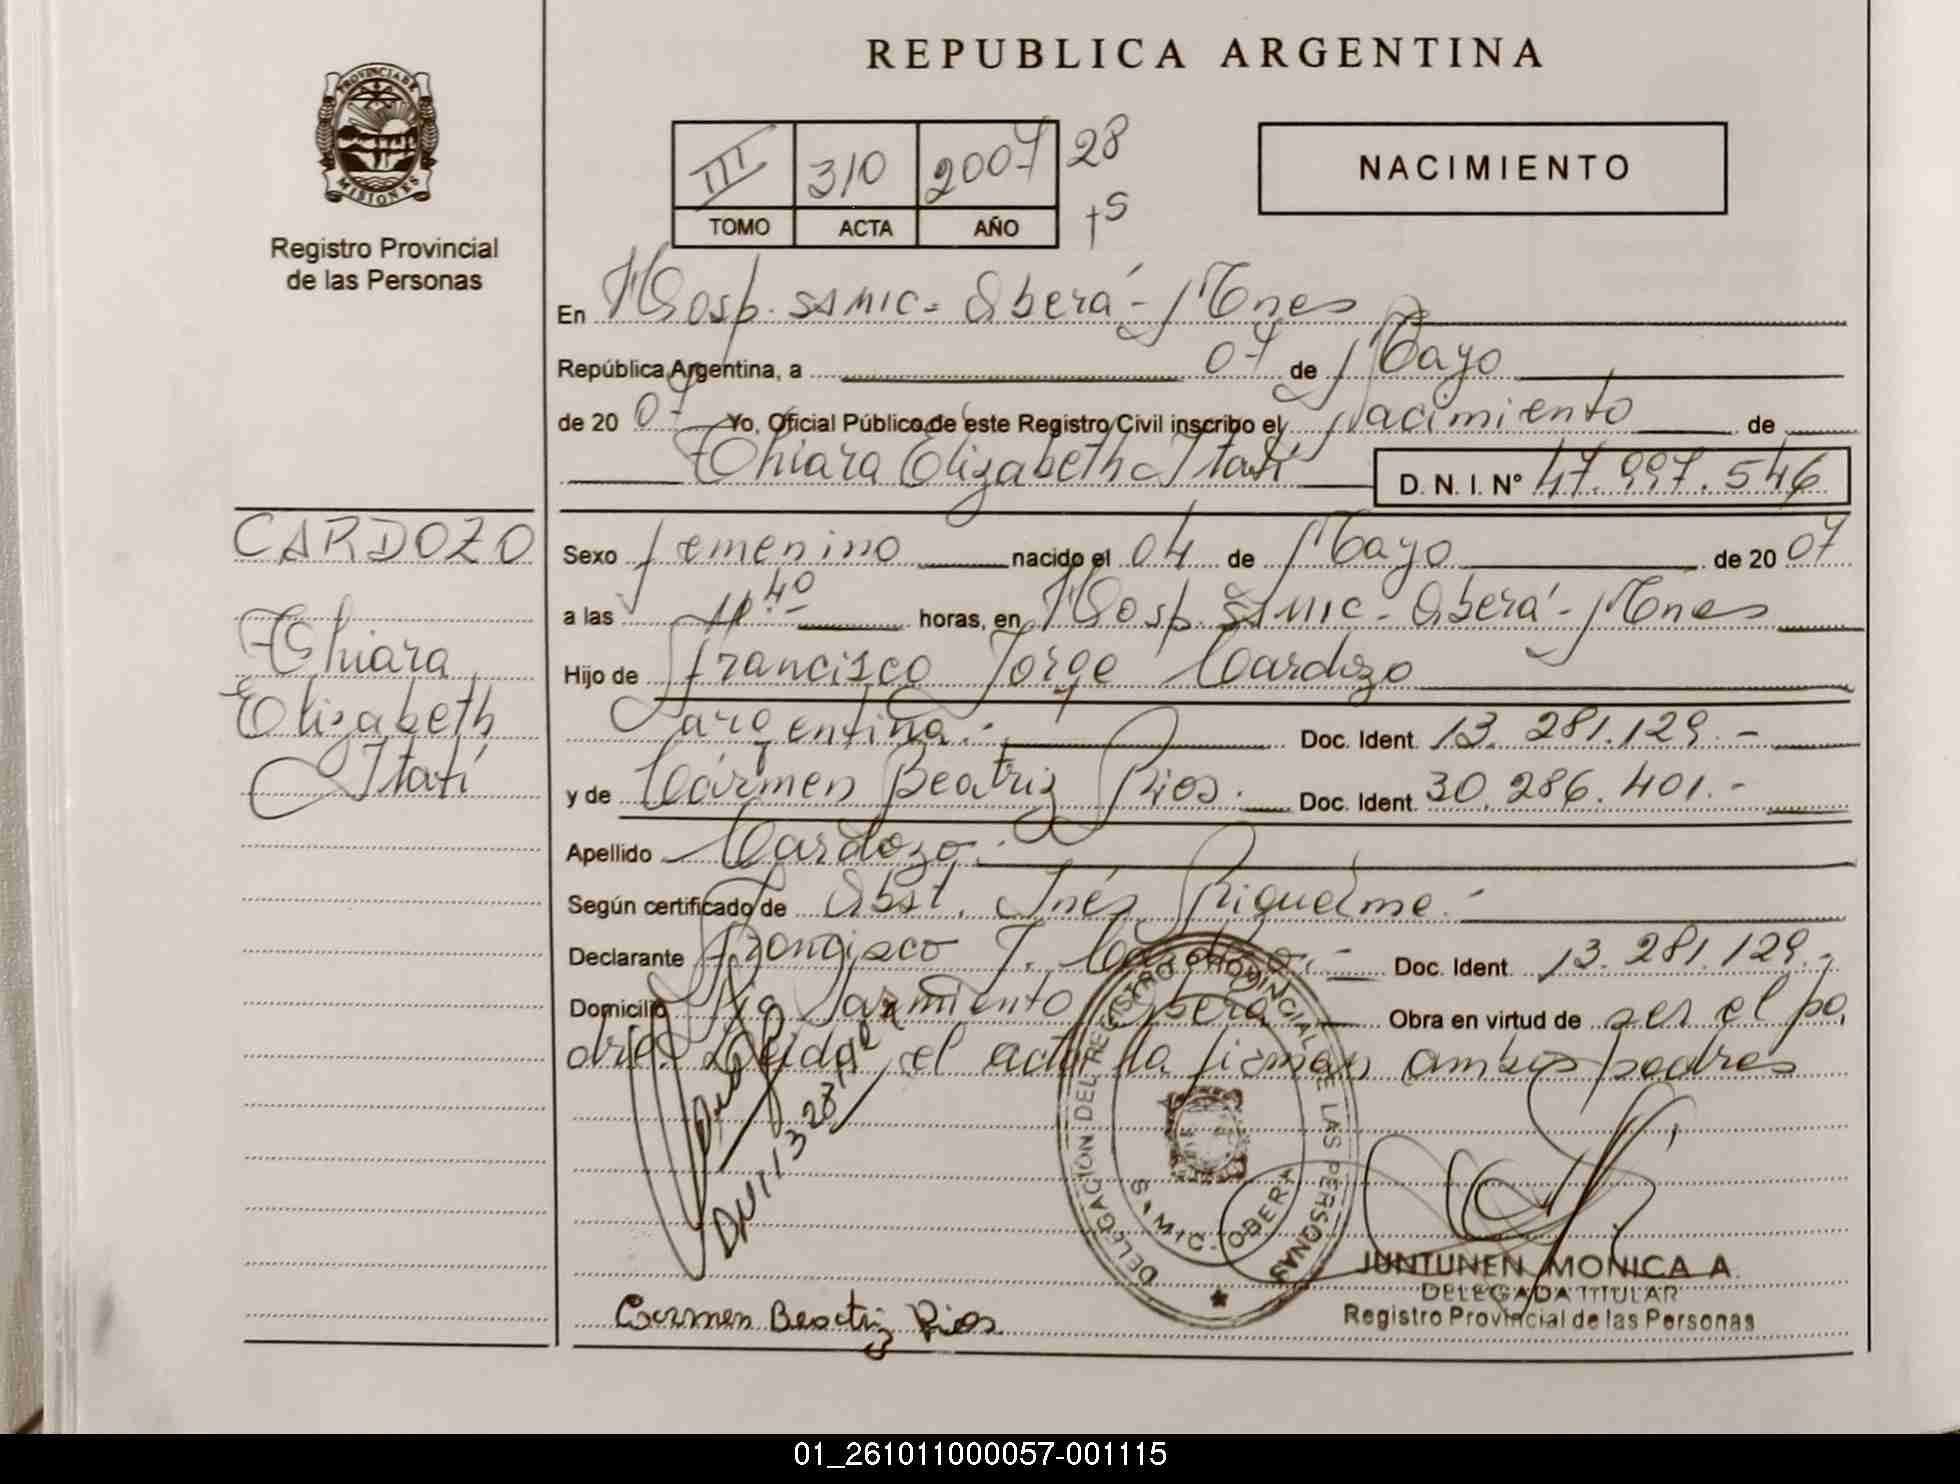 REPUBLICA ARGENTINA
PROVINCIA DE
MISIONES
Registro Provincial
de las Personas
III 310 2007 28
TOMO ACTA AÑO
NACIMIENTO
En Hosp. SAMIC - Oberá - Mnes
República Argentina, a 07 de Mayo
de 20 07 Yo, Oficial Público de este Registro Civil inscribo el Nacimiento de
Chiara Elizabeth Itatí D. N. I. Nº 47.997.546
CARDOZO
Chiara
Elizabeth
Itatí
Sexo femenino nacido el 04 de Mayo de 20 07
a las 11:40 horas, en Hosp. SAMIC - Oberá - Mnes
Hijo de Francisco Jorge Cardozo
argentina.- Doc. Ident. 13.281.129.-
y de Cármen Beatriz Rios. Doc. Ident. 30.286.401.-
Apellido Cardozo.-
Según certificado de Obst. Inés Riquelme.-
Declarante Francisco J. Cardozo.- Doc. Ident. 13.281.129.-
Domicilio Sarmiento Oberá Obra en virtud de ser el pa
dre. Leída el acta la firman ambos padres
DELEGACIÓN DEL REGISTRO PROVINCIAL DE LAS PERSONAS
SAMIC - OBERA
JUNTUNEN MONICA A.
DELEGADA TITULAR
Registro Provincial de las Personas
Carmen Beatriz Rios
01_261011000057-001115